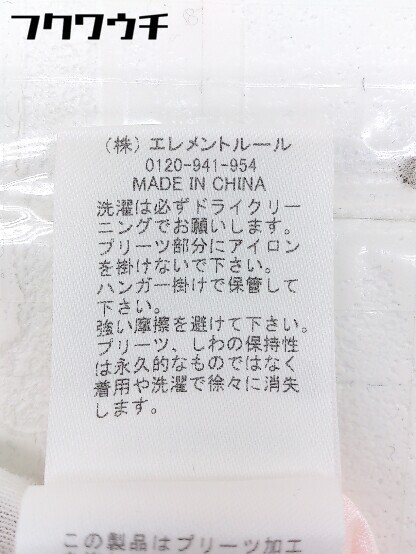 フクワウチ
（株）エレメントルール
0120-941-954
MADE IN CHINA
洗濯は必ずドライクリー
ニングでお願いします。
プリーツ部分にアイロン
を掛けないで下さい。
ハンガー掛けで保管して
下さい。
強い摩擦を避けて下さい。
プリーツ、しわの保持性
は永久的なものではなく
着用や洗濯で徐々に消失
します。
この製品はプリーツ加工